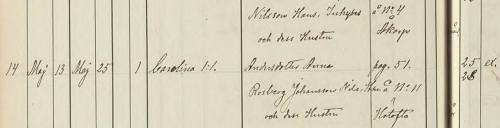 Nilsson Hans, Inhyses å No 4
och dess Hustru Åkarp
14 Maj 13 Maj 25 1 Carolina 1:1. Andersdotter Anna pag. 51. 25 ex.
Rosberg Johansson Nils, å No 11 28
och dess Hustru i Hotofta